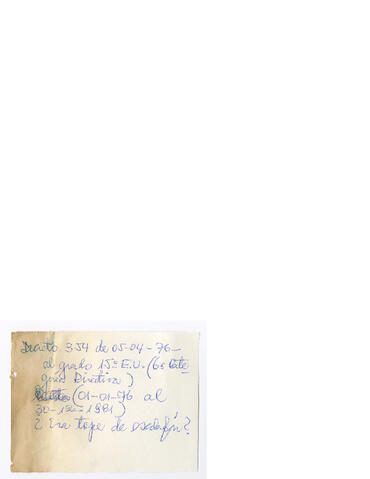 Decreto 354 de 05-04-76-
al grado 15º E.U. (6ª Cate
goría Directiva)
(01-01-76 al
30-12-1981)
¿ Era tope de escalafón?